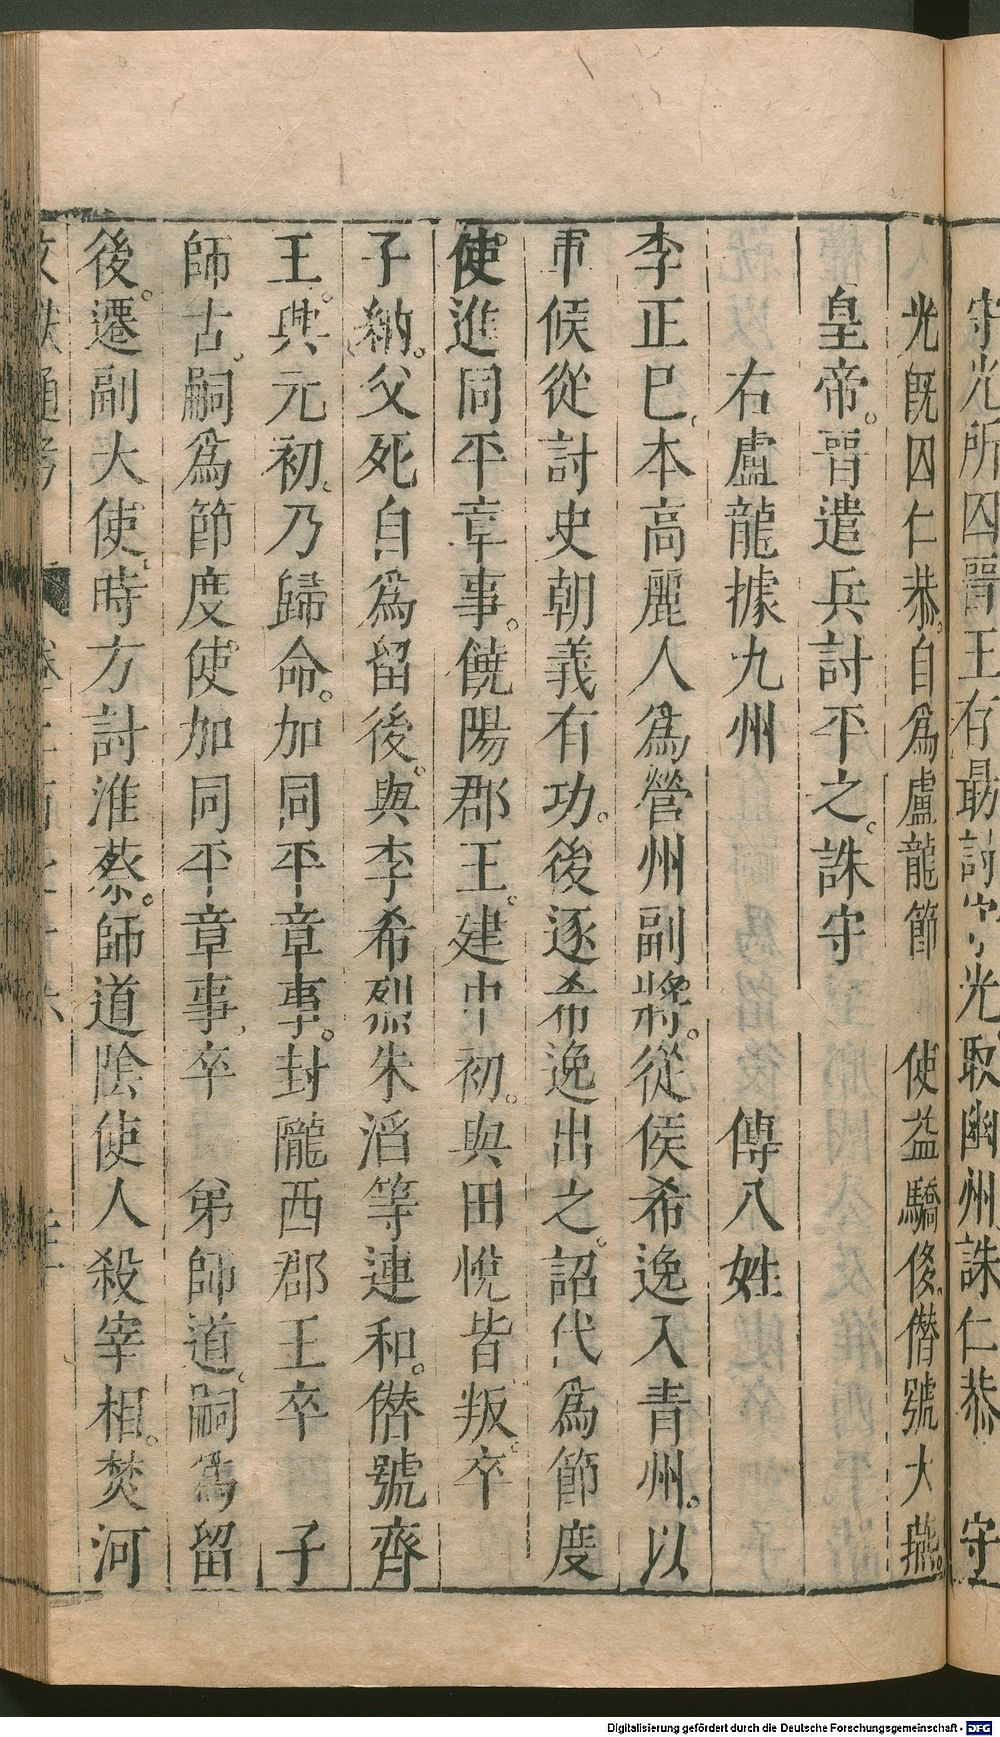 守光所囚晋王存朂討守光取幽州誅仁恭 守
光旣囚仁恭。自爲盧龍節 使益驕侈。僭號大燕。
皇帝。晋遣兵討平之。誅守
右盧龍據九州 傳八姓
李正巳、本高麗人爲營州副將。從侯希逸入青州。以
軍候從討史朝義有功。後逐希逸出之。詔代爲節度
使。進同平章事。饒陽郡王。建中初。與田悅皆叛。卒
子納。父死自爲留後。與李希烈朱滔等連和。僭號齊
王。興元初、乃歸命。加同平章事。封隴西郡王卒 子
師古。嗣爲節度使。加同平章事、卒 弟師道。嗣爲留
後。遷副大使、時方討淮蔡。師道陰使人殺宰相。焚河
文獻通考
Digitalisierung gefördert durch die Deutsche Forschungsgemeinschaft - DFG